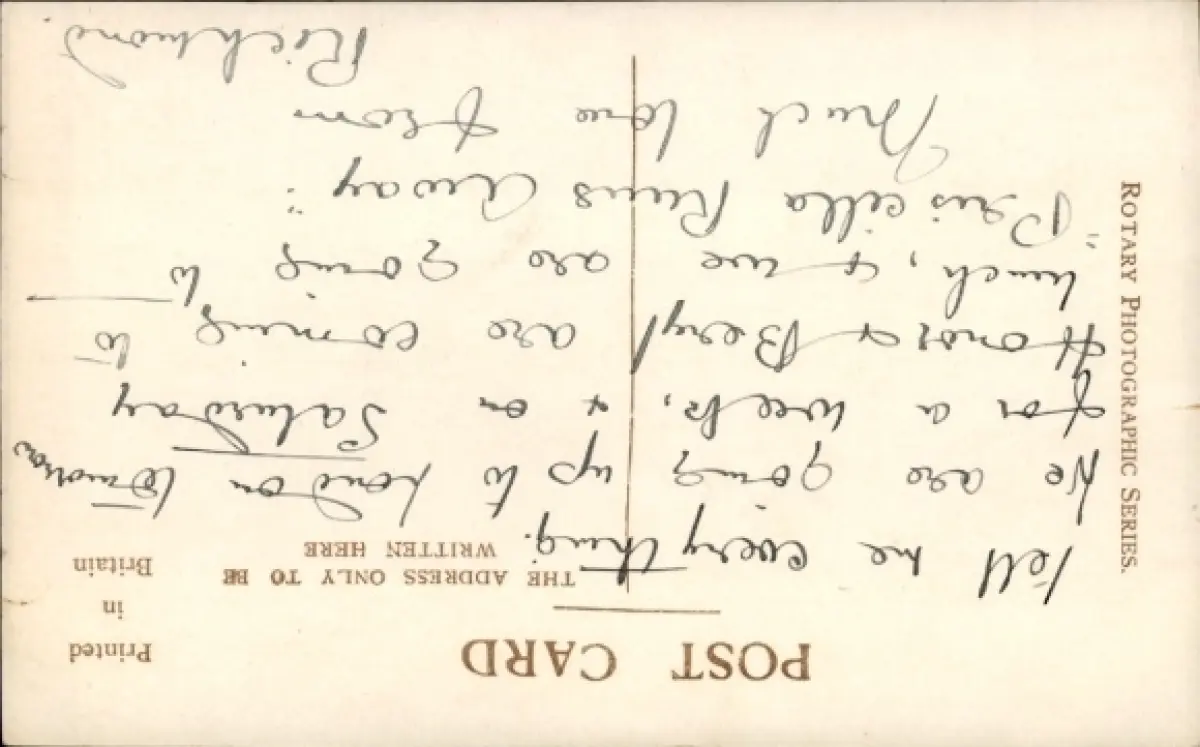 POST CARD
Printed
in
Britain
THE ADDRESS ONLY TO BE
WRITTEN HERE
ROTARY PHOTOGRAPHIC SERIES.
Tell me everything.
We are going up to London tomorrow
for a week, & on Saturday
& Beryl are coming to
lunch, & we are going to
"Priscilla Runs Away".
Much love from
Richmond.